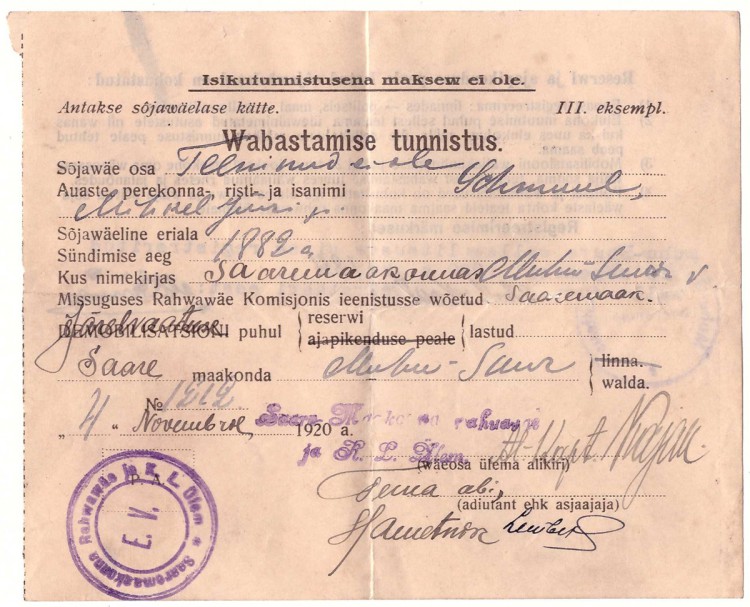 Isikutunnistusena maksew ei ole.
Antakse sõjawäelase kätte. III. eksempl.
Wabastamise tunnistus.
Sõjawäe osa Teeninud ei ole
Auaste perekonna-, risti- ja isanimi Schmuul,
Mihkel Jüri p.
Sõjawäeline eriala
Sündimise aeg 1882 a
Kus nimekirjas Saaremaakonnas Muhu-Suur v
Missuguses Rahwawäe Komisjonis ieenistusse wõetud Saaremaak.
Järelvaatuse
DEMOBILISATSIONI puhul reserwi ajapikenduse peale lastud
Saare maakonda Muhu-Suur linna. walda.
№ 1212
"4" Novembril 1920 a. Saare Maakonna rahvaväe
ja K. L. Ülem. Kapt.
(wäeosa ülema alikiri)
P. A. Tema abi,
(adiutant ehk asjaajaja)
Ametnik
Saaremaakona Rahwawäe ja K. L. Ülem
E. V.